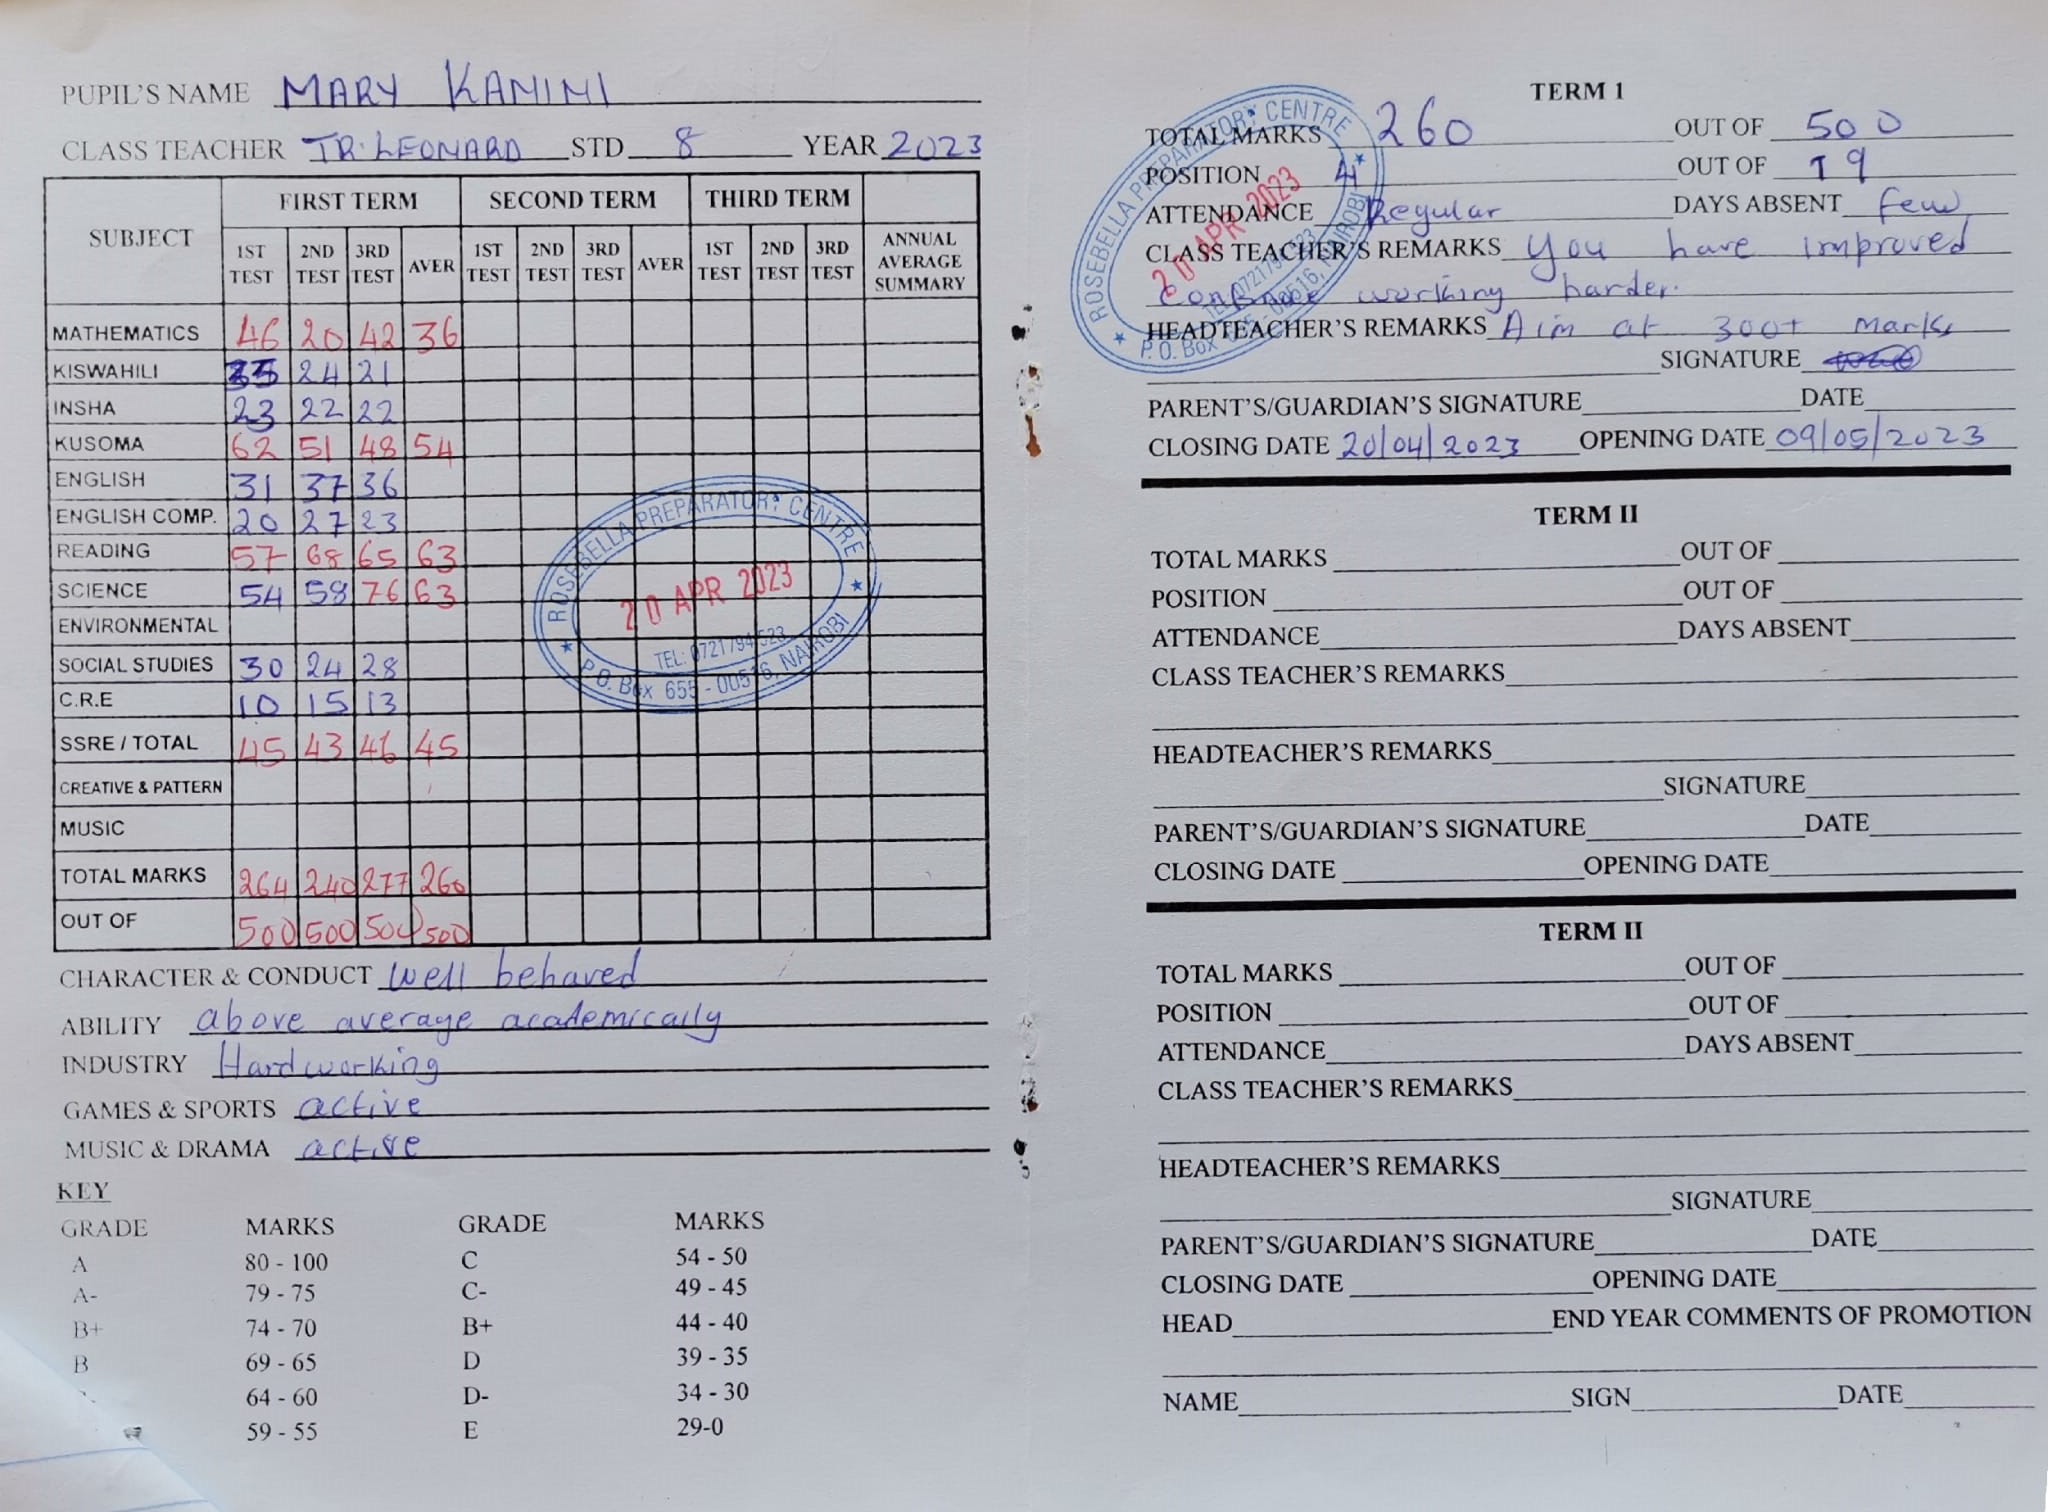 PUPIL'S NAME MARY KANINI
CLASS TEACHER TR. LEONARD STD 8 YEAR 2023
SUBJECT FIRST TERM SECOND TERM THIRD TERM
1ST TEST 2ND TEST 3RD TEST AVER 1ST TEST 2ND TEST 3RD TEST AVER 1ST TEST 2ND TEST 3RD TEST ANNUAL AVERAGE SUMMARY
MATHEMATICS 46 20 42 36
KISWAHILI 24 21
INSHA 23 22 22
KUSOMA 62 51 48 54
ENGLISH 31 37 36
ENGLISH COMP. 20 27 23
READING 57 68 65 63
SCIENCE 54 58 76 63
ENVIRONMENTAL
SOCIAL STUDIES 30 24 28
C.R.E 10 15 13
SSRE / TOTAL 45 43 46 45
CREATIVE & PATTERN
MUSIC
TOTAL MARKS 264 240 277 260
OUT OF 500 500 500 500
ROSEBELLA PREPARATORY CENTRE
20 APR 2023
TEL: 0721794523
P.O. Box 655 - 00516, NAIROBI
CHARACTER & CONDUCT well behaved
ABILITY above average academically
INDUSTRY Hardworking
GAMES & SPORTS active
MUSIC & DRAMA active
KEY
GRADE MARKS GRADE MARKS
A 80 - 100 C 54 - 50
A- 79 - 75 C- 49 - 45
B+ 74 - 70 B+ 44 - 40
B 69 - 65 D 39 - 35
64 - 60 D- 34 - 30
59 - 55 E 29-0
TERM 1
TOTAL MARKS 260 OUT OF 500
POSITION 4 OUT OF 19
ATTENDANCE Regular DAYS ABSENT Few
CLASS TEACHER'S REMARKS You have improved
continue working harder.
HEADTEACHER'S REMARKS Aim at 300+ marks
SIGNATURE
PARENT'S/GUARDIAN'S SIGNATURE DATE
CLOSING DATE 20/04/2023 OPENING DATE 09/05/2023
ROSEBELLA PREPARATORY CENTRE
20 APR 2023
P.O. Box 655 - 00516, NAIROBI
TERM II
TOTAL MARKS OUT OF
POSITION OUT OF
ATTENDANCE DAYS ABSENT
CLASS TEACHER'S REMARKS
HEADTEACHER'S REMARKS
SIGNATURE
PARENT'S/GUARDIAN'S SIGNATURE DATE
CLOSING DATE OPENING DATE
TERM II
TOTAL MARKS OUT OF
POSITION OUT OF
ATTENDANCE DAYS ABSENT
CLASS TEACHER'S REMARKS
HEADTEACHER'S REMARKS
SIGNATURE
PARENT'S/GUARDIAN'S SIGNATURE DATE
CLOSING DATE OPENING DATE
HEAD END YEAR COMMENTS OF PROMOTION
NAME SIGN DATE